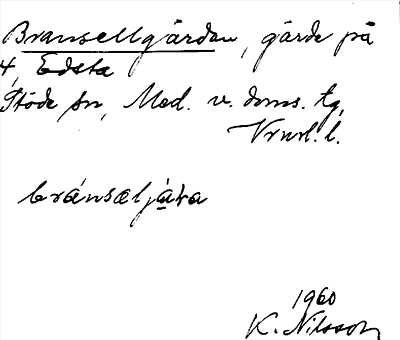 Bransellgärdan, gärde på
4, Edsta
Stöde sn, Med. v. doms. tg,
Vrnl. l.
bránsæljà
1960
K. Nilsson